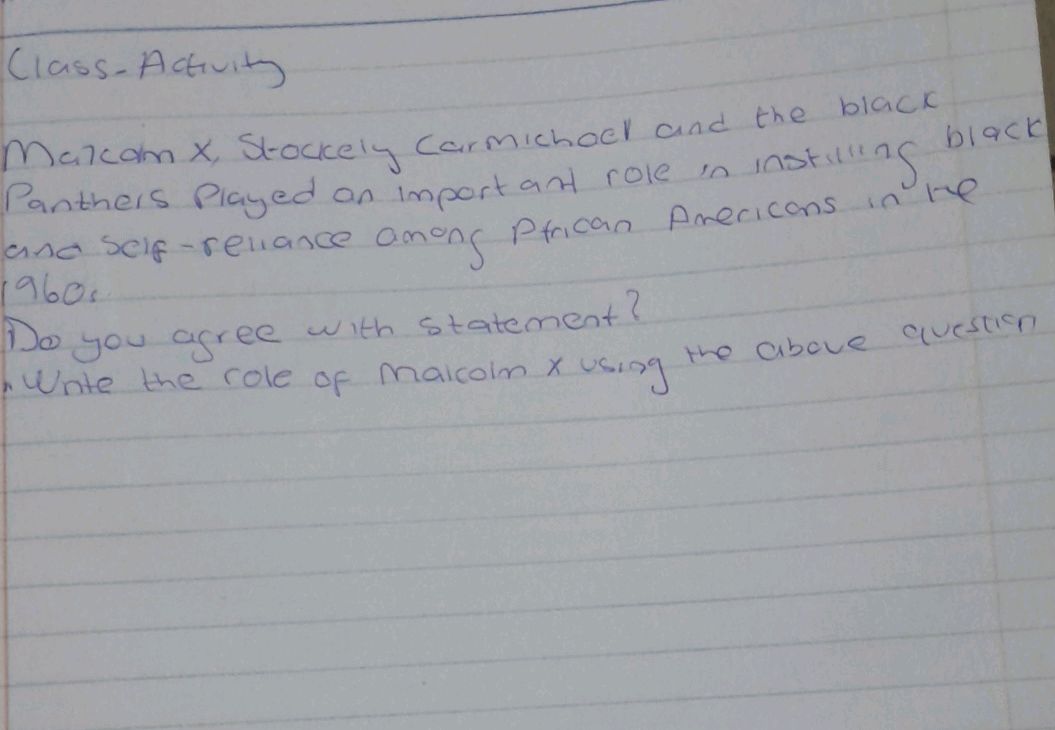 Class-Activity
Malcom X, Stockely Carmichael and the black
Panthers Played an important role in instilling black
and self-reliance among African Americans in the
1960s
Do you agree with statement?
Write the role of malcolm x using the above question